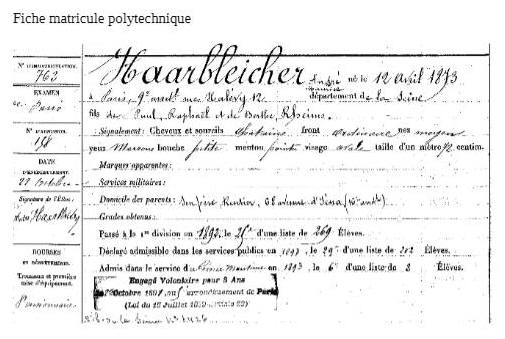 Fiche matricule polytechnique
N° D'IMMATRICULATION
763
EXAMEN
Paris
N° D'ADMISSION
DATE
D'ENREGISTREMENT.
Octobre
Signature de l'Élève:
BOURSES
ET DÉGRÈVEMENT.
Trousseau et première
mise d'équipement.
Pensionnaire
Haarbleicher André
Maurice né le 12 Avril 1873
à Paris, 9e arrt rue Halévy 12 département de la Seine
fils de Paul, Raphaël et de Berthe, Rheims.
Signalement: Cheveux et sourcils châtains front ordinaire nez moyen
yeux Marrons bouche petite menton pointu visage ovale taille d'un mètre 72 centim.
Marques apparentes:
Services militaires:
Domicile des parents: Son père Rentier, avenue d'Iéna (16e arrdt)
Grades obtenus:
Passé à la 1re division en 1892 le d'une liste de 269 Élèves.
Déclaré admissible dans les services publics en 1893 le 29e d'une liste de Élèves.
Admis dans le service du Génie Maritime en 1893, le 6e d'une liste de Élèves.
Engagé Volontaire pour 3 Ans
Octobre 1891, au arrondissement de Paris
(Loi du 15 Juillet 1889